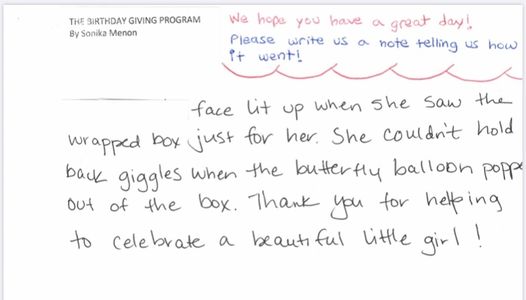 THE BIRTHDAY GIVING PROGRAM
By Sonika Menon
We hope you have a great day!
Please write us a note telling us how
it went!
face lit up when she saw the
wrapped box just for her. She couldn't hold
back giggles when the butterfly balloon poppe
out of the box. Thank you for helping
to celebrate a beautiful little girl!